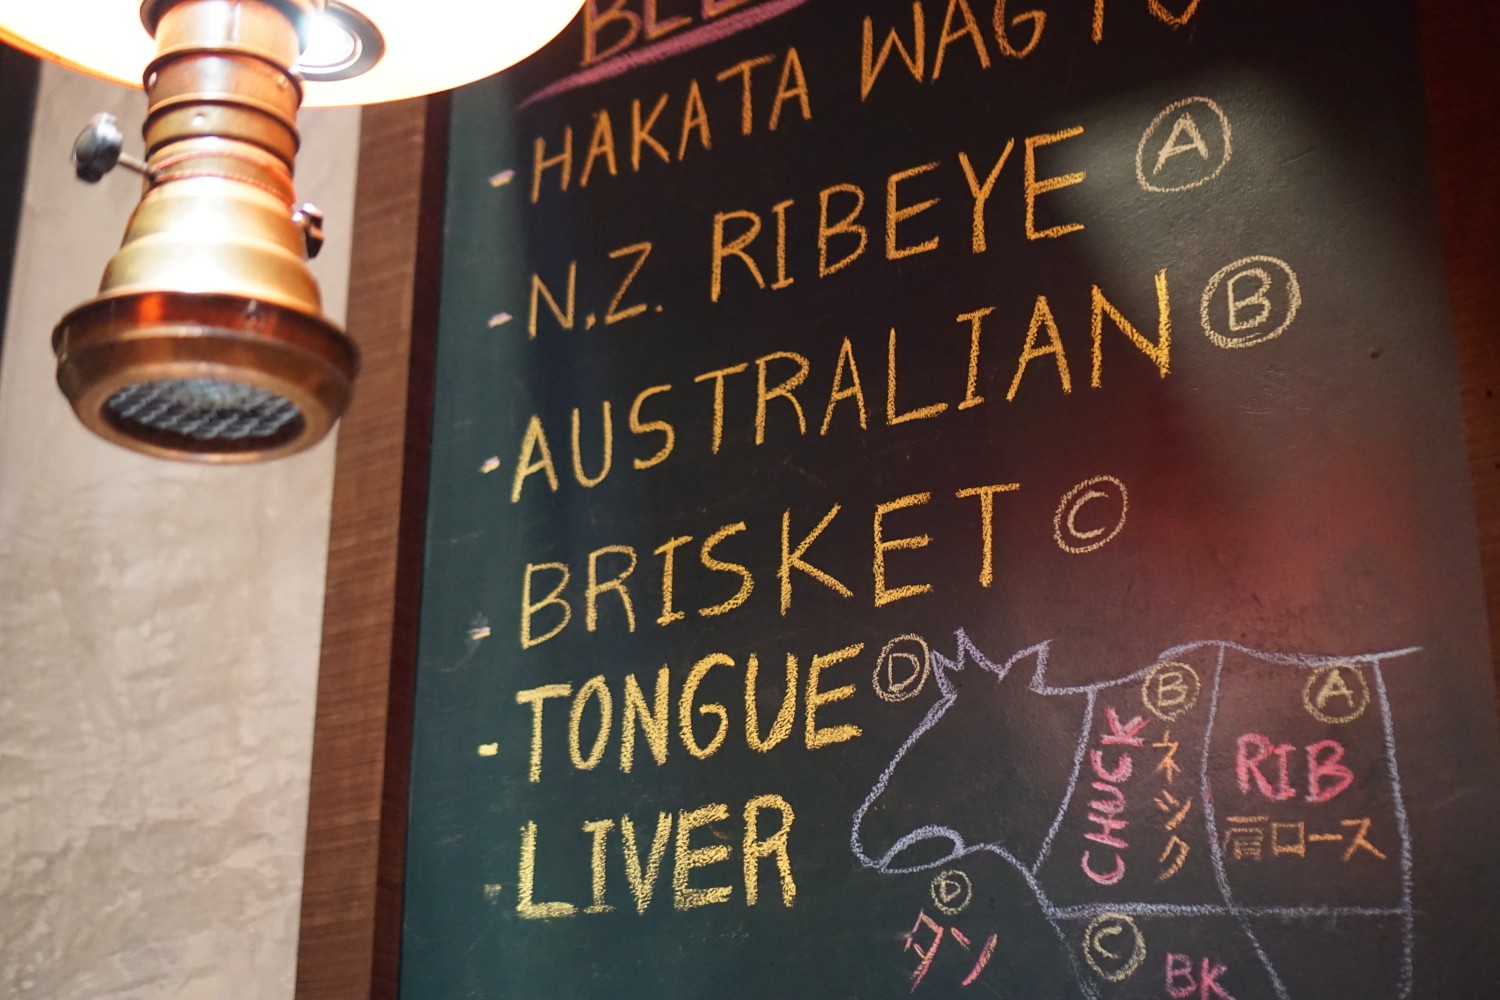 BEE
- HAKATA WAGYU
- N.Z. RIBEYE Ⓐ
- AUSTRALIAN Ⓑ
- BRISKET Ⓒ
- TONGUE Ⓓ
- LIVER
Ⓑ
CHUCK
ネック
Ⓐ
RIB
肩ロース
Ⓓ
タン
Ⓒ
BK